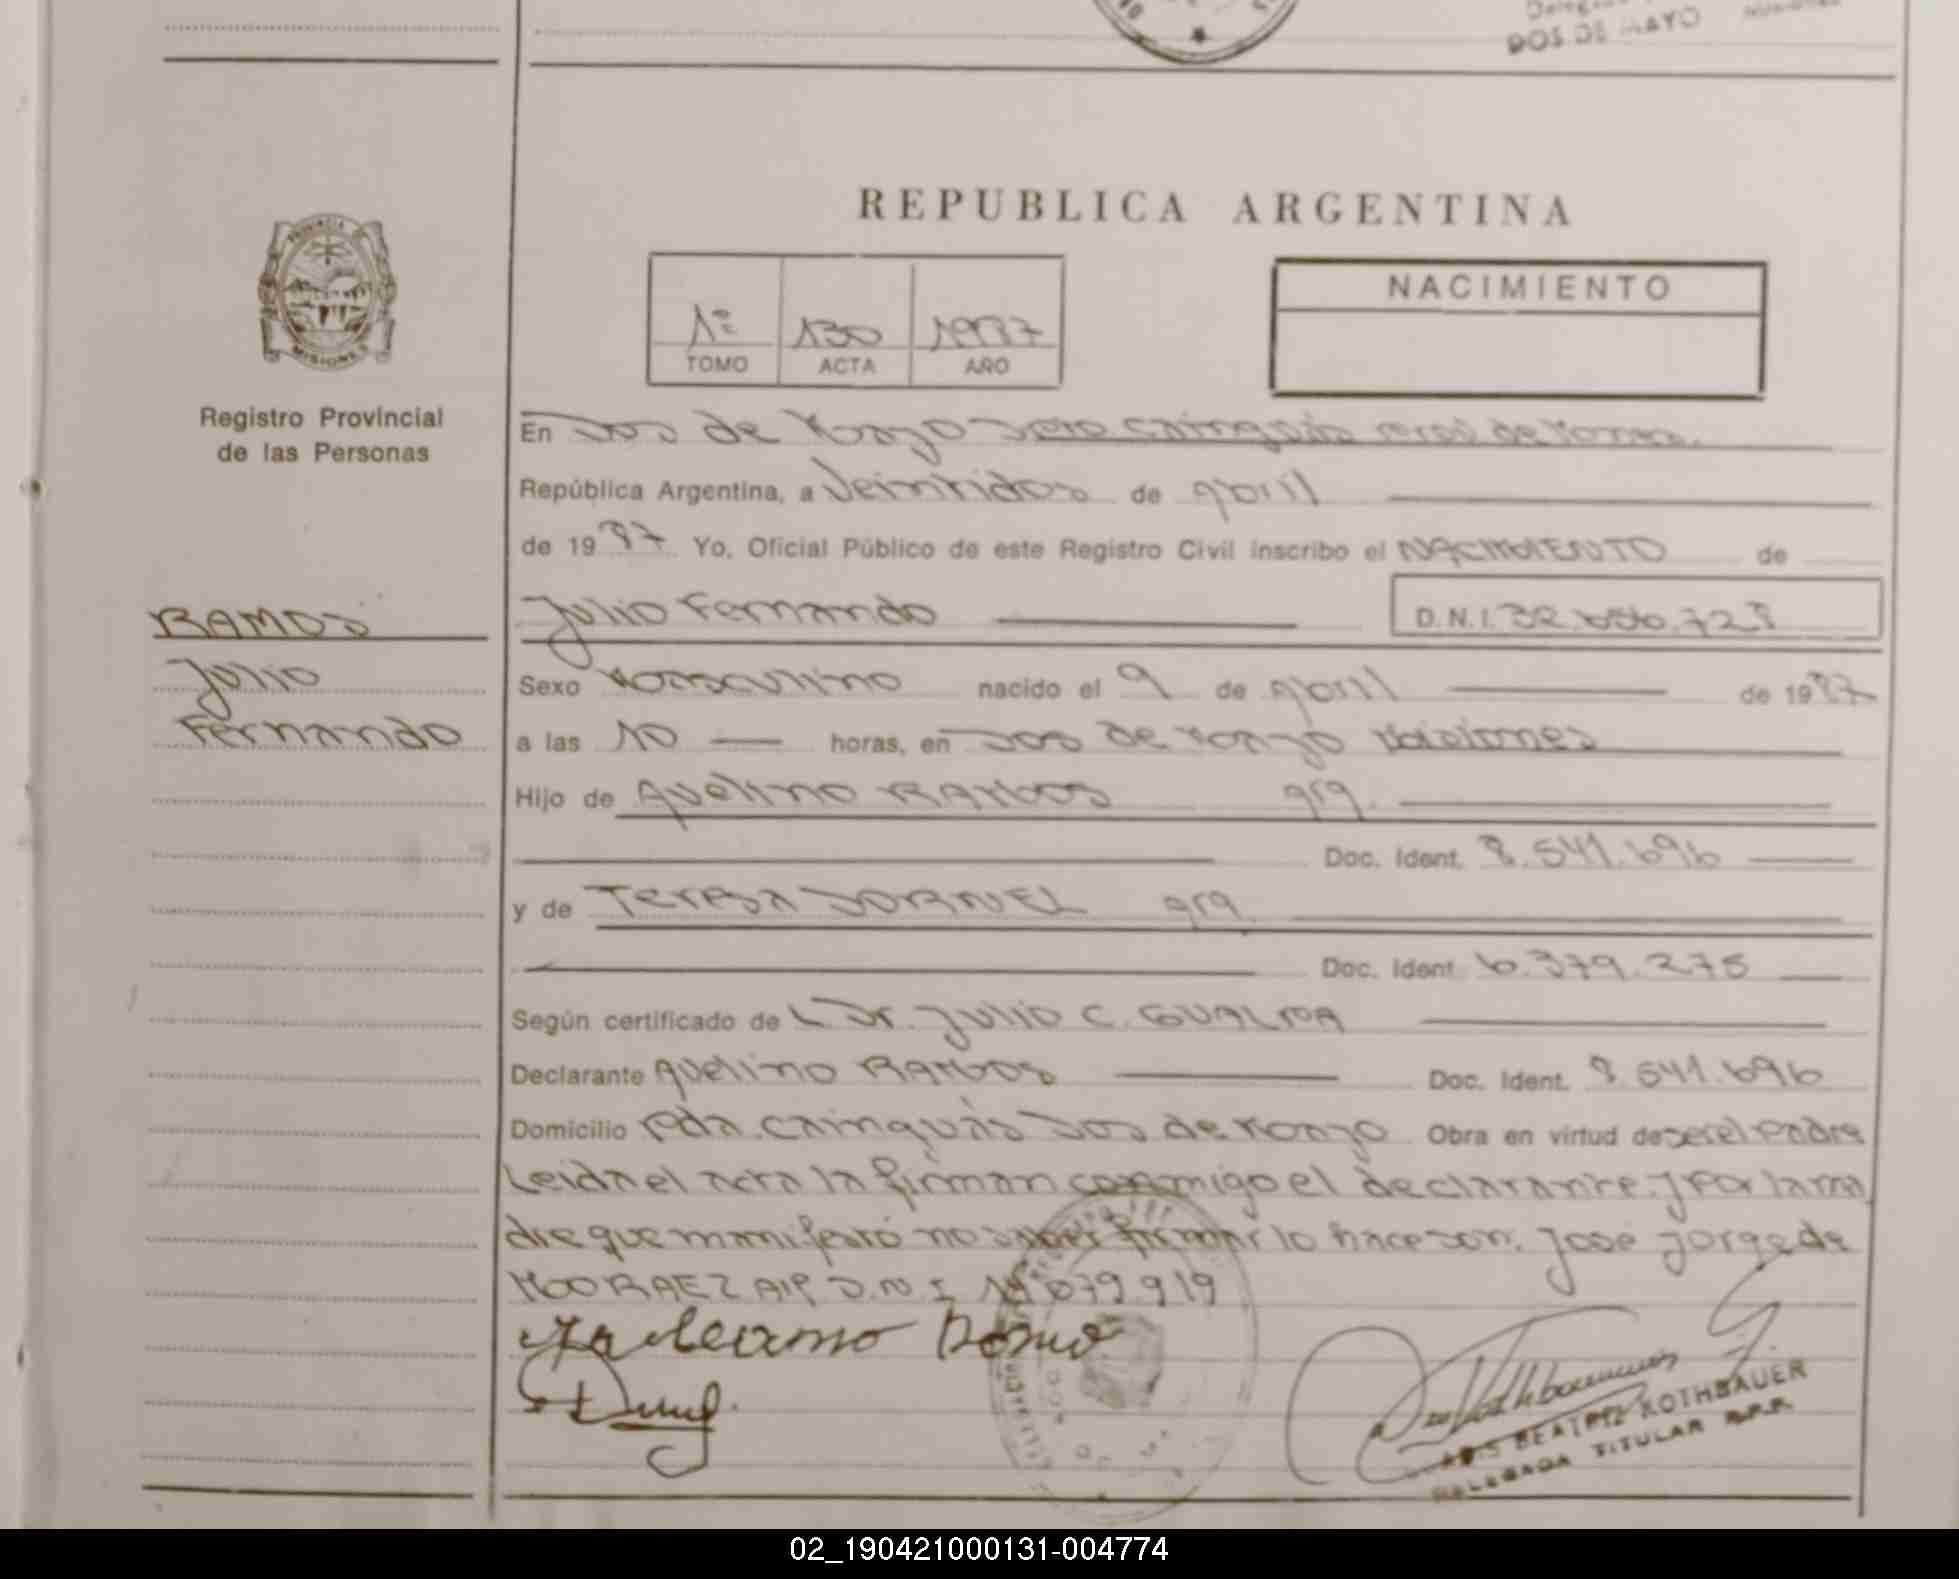 DOS DE MAYO
REPUBLICA ARGENTINA
PROVINCIA DE
MISIONES
Registro Provincial
de las Personas
NACIMIENTO
1º 130 1987
TOMO ACTA AÑO
En Dos de Mayo Dpto Cainguás
República Argentina, a Veintidos de abril
de 1987 Yo, Oficial Público de este Registro Civil inscribo el NACIMIENTO de
RAMOS
Julio Fernando D.N.I. 32.656.728
Julio
Fernando
Sexo Masculino nacido el 9 de abril de 1987
a las 10 horas, en Dos de Mayo Misiones
Hijo de Avelino RAMOS arg.
Doc. Ident. 8.541.696
y de TERESA DORNEL arg.
Doc. Ident. 6.379.275
Según certificado de L Dr. Julio C. GUALPA
Declarante Avelino RAMOS Doc. Ident. 8.541.696
Domicilio Pda. Cainguás Dos de Mayo Obra en virtud de ser el Padre
Leida el acta la firman conmigo el declarante y por la ma
dre que manifestó no saber firmar lo hace don. Jose Jorge da
MORAEZ D.N.I 679.919
ROTHBAUER
DELEGADA TITULAR R.P.P.
02_190421000131-004774